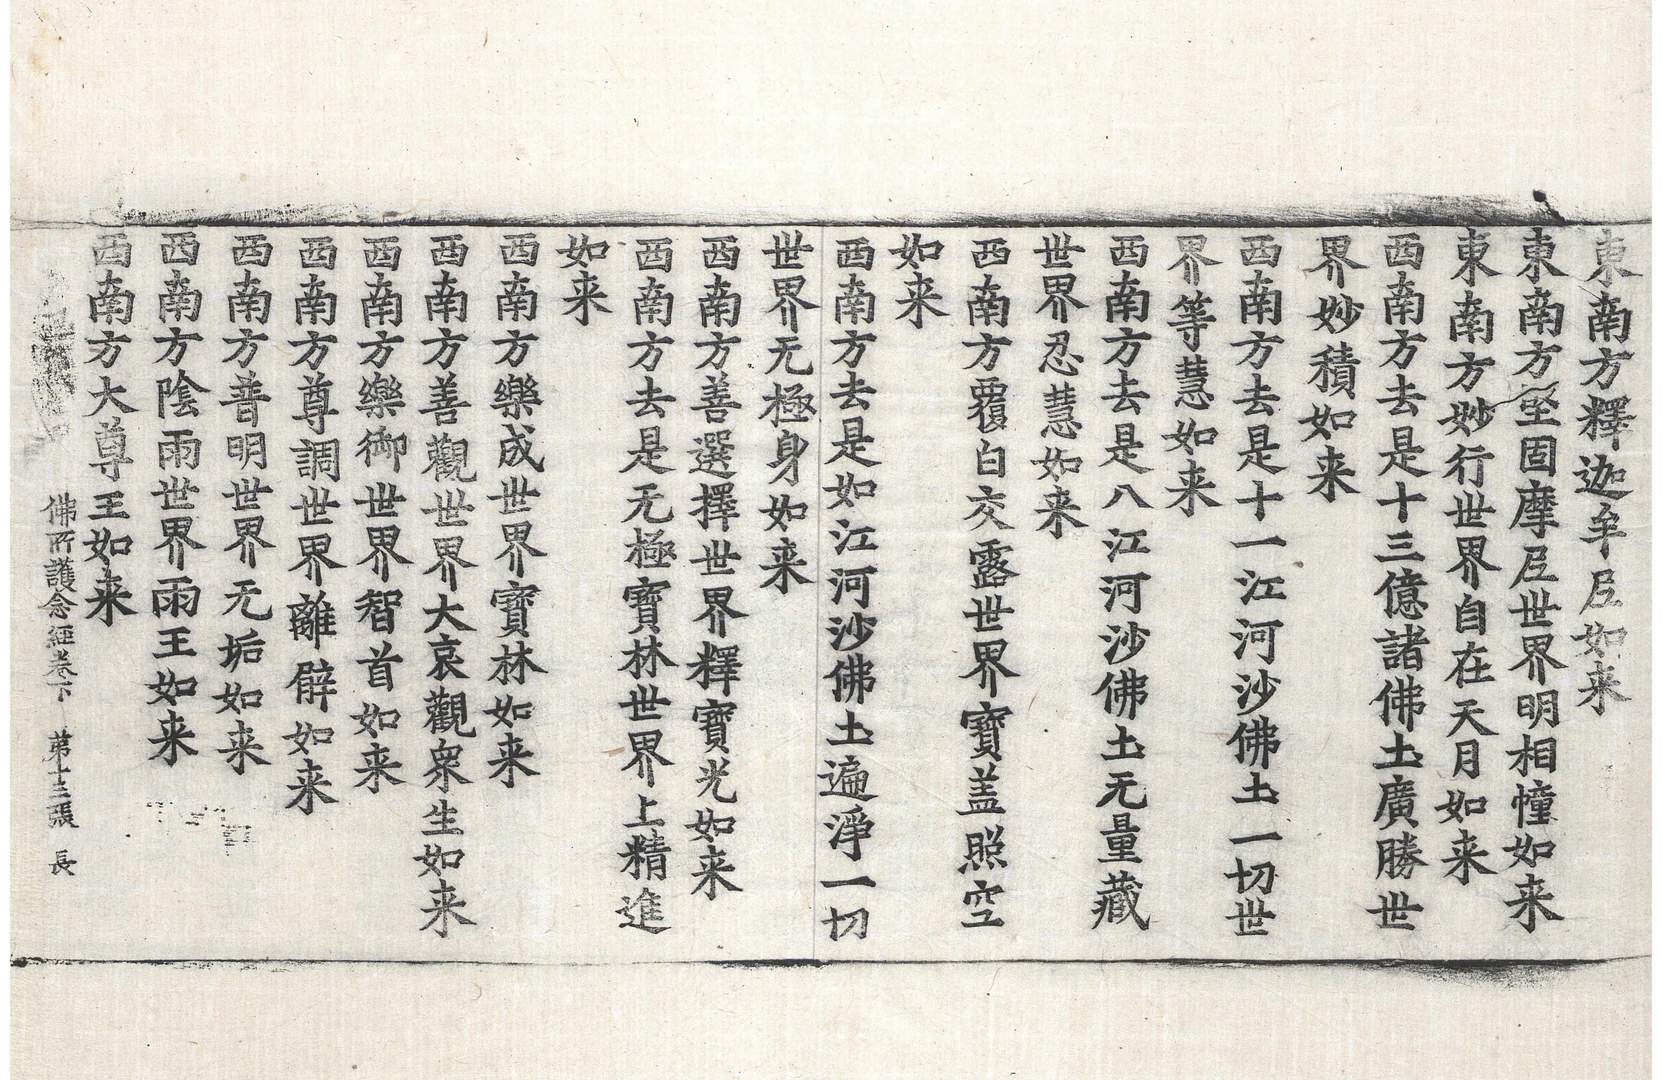 東南方釋迦牟尼如来
東南方堅固摩尼世界明相幢如来
東南方妙行世界自在天月如来
西南方去是十三億諸佛土廣勝世
界妙積如来
西南方去是十一江河沙佛土一切世
界等慧如来
西南方去是八江河沙佛土无量藏
世界忍慧如来
西南方覆白交露世界寶盖照空
如来
西南方去是如江河沙佛土遍淨一切
世界无極身如来
西南方善選擇世界釋寶光如来
西南方去是无極寶林世界上精進
如来
西南方樂成世界寶林如来
西南方善觀世界大哀觀衆生如来
西南方樂御世界智首如来
西南方尊調世界離辟如来
西南方普明世界无垢如来
西南方陰雨世界雨王如来
西南方大尊王如来
佛所護念経卷下 第十三張 長